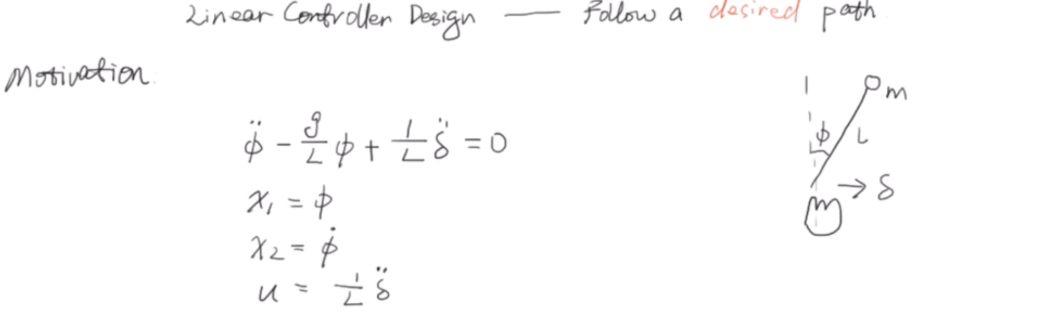 Linear Controller Design — Follow a desired path
Motivation.
m
ϕ̈ - g/L ϕ + 1/L δ̈ = 0
ϕ L
x₁ = ϕ
→ δ
x₂ = ϕ̇
m
u = 1/L δ̈